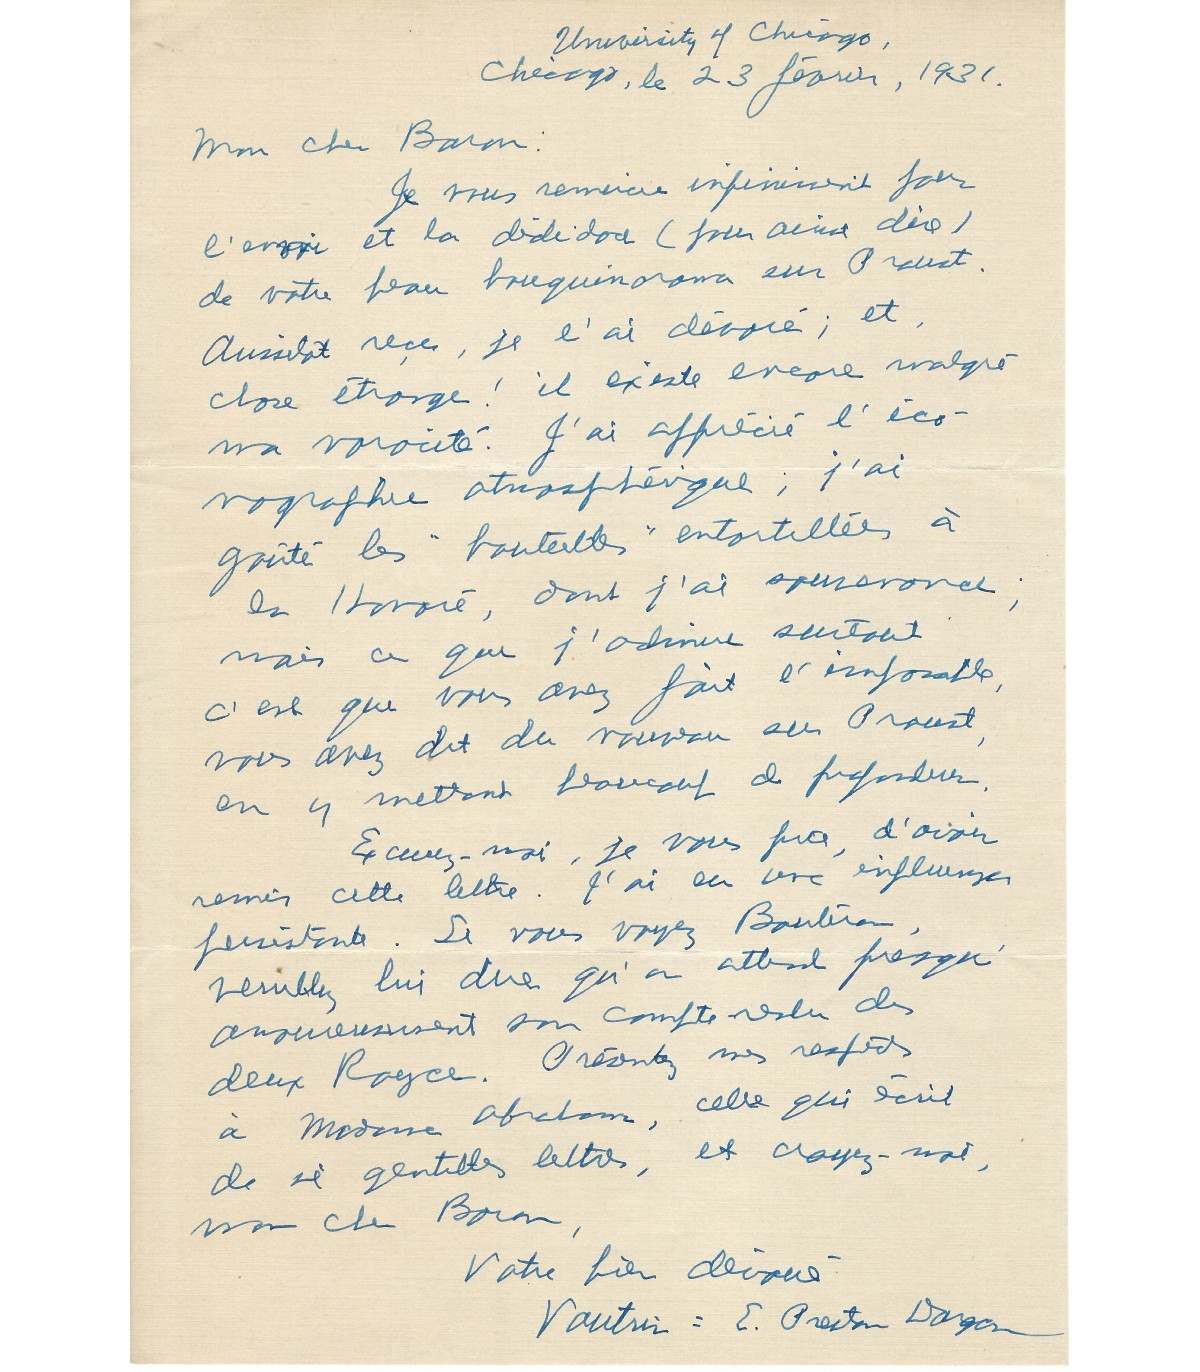 University of Chicago,
Chicago, le 23 février, 1931.
Mon cher Baron:
Je vous remercie infiniment pour
l'envoi et la (pour ainsi dire)
de votre beau bouquinorama sur Proust.
Aussitôt reçu, je l'ai dévoré; et,
chose étrange! il existe encore malgré
ma voracité. J'ai apprécié l'éco-
nographie atmosphérique; j'ai
goûté les "bouteilles" entortillées à
la Havoré, dont j'ai souvenance;
mais ce que j'admire surtout
c'est que vous avez fait l'impossible,
vous avez dit du nouveau sur Proust,
en y mettant beaucoup de profondeur.
Excusez-moi, je vous prie, d'avoir
remis cette lettre. J'ai eu une influenza
persistante. Si vous voyez Boutéron,
veuillez lui dire qu'on attend presqu'
amoureusement son compte-rendu des
deux Royce. Présentez mes respects
à Madame Abraham, celle qui écrit
de si gentilles lettres, et croyez-moi,
mon cher Baron,
Votre bien dévoué
Vautrin = E. Preston Dargan